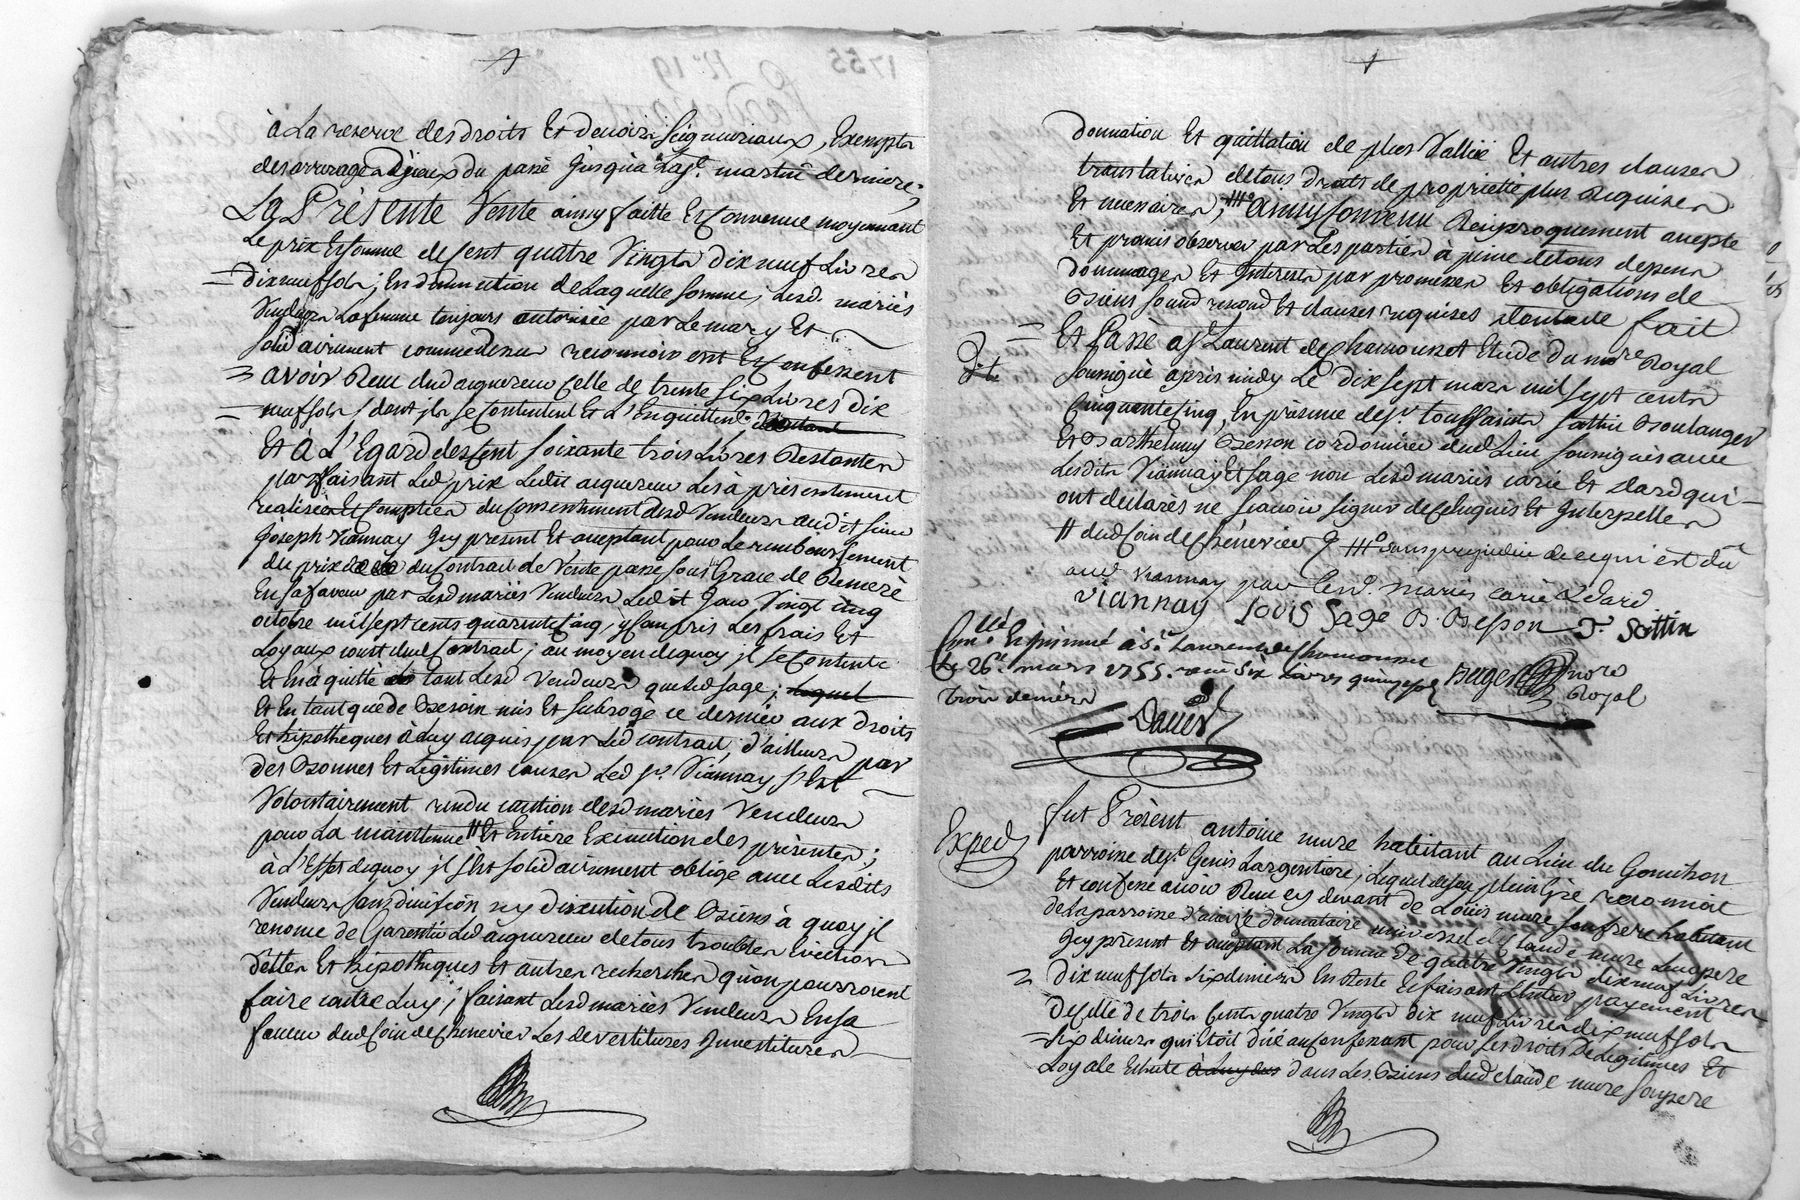 à La reserve des droits Et devoirs seigneuriaux, Exempts
des arrerages d'jceux du passé jusqu'à La st. martin derniere;
La Présente Vente ainsy faitte Et Convenue moyennant
Le prix Et somme de Cent quatre Vingts dix neuf Livres
dix neuf sols; En diminution de Laquelle somme, Lesd. mariés
Vendeurs La femme toujours autorisée par Le mary Et
solidairement comme dessus reconnoissent Et Confessent
avoir Reçu dud aquereur Celle de trente six Livres dix
neuf sols, dont jls se Contentent Et L'En quittent
Et à L'Egard des Cent soixante trois Livres Restantes
parfaisant Led prix Ledit aquereur Les à présentement
realisées Et Comptées du Consentement desd Vendeurs audit sieur
Joseph Viannay jcy présent Et acceptant pour Le remboursement
du prix du Contract de Vente passé sous Grace de Remeré
En sa faveur par Lesd mariés Vendeurs Ledit Jour Vingt cinq
octobre mil sept cents quarente cinq, y Compris Les frais Et
Loyaux cousts dud Contract; au moyen de quoy jl se Contente
Et En à quitté tant Lesd Vendeurs que Led sage; Lequel
Et En tant que de Besoin mis Et subrogé ce dernier aux droits
Et hipotheques à Luy acquis par Led contract, d'ailleurs par
des Bonnes Et Legitimes causes Led sr. Viannay s'Est
Volontairement rendu caution desd mariés Vendeurs
pour La maintenue # Et Entiere Execution des présentes;
à L'Effet de quoy jl s'Est solidairement obligé avec Lesdits
Vendeurs sans division ny discution de Biens à quoy jl
renonce de Garentir Led aquereur de tous troubles Evictions
dettes Et hipotheques Et autres recherches qu'on pourroient
faire contre Luy; faisant Lesd mariés Vendeurs En sa
faveur dud Coin de Chenevier Les devestitures Investitures
donnation Et quittation de plus Vallüe Et autres clauses
translatives de tous droits de proprieté plus Requises
Et necessaires; ainsy Convenu Reciproquement accepté
Et promis observer par Les parties à peine de tous depens
dommages Et Interests par promesses Et obligations de
Biens soumd renond Et clauses requises dont acte fait
Et Passé à St Laurent de Chamousset Etude du nore Royal
soussigné après midy Le dix sept mars mil sept cents
Cinquente cinq, En présence de sr. toussaint sottin Boulanger
Et Barthelmy Besson cordonnier dud Lieu soussignés avec
Lesdits Viannay Et sage non Lesd mariés carié Et dard qui
ont declarés ne scavoir signer de ce Enquis Et Interpellés
# dud Coin de Chenevier sans prejudice de ce qui est dû
aud Viannay par Lesd. mariés carié & dard
Viannay Louis Sage B. Besson T. Sottin
Conllé Et insinué à St. Laurent de Chamousset
Le 26e. mars 1755. six Livres quinze sols
trois deniers
nore
Royal
Exped
fut Présent antoine mure habitant au Lieu du Gouthon
parroisse de st. Genis L'argentiere; Lequel de son plein gré reconnoit
Et confesse avoir Reçu cy devant de Loüis mure son frere habitant
de La parroisse d'aveize donnataire universel de Claude mure Leur pere
jcy présent Et acceptant La somme de quatre Vingts dix neuf Livres
dix neuf sols six deniers En Reste Et faisant L'Entier payement
de Celle de trois Cents quatre Vingts dix neuf Livres dix neuf sols
six deniers qui Etoit düe au Confessant pour ses droits De Legitimes Et
Loyale Echute dans Les Biens dud Claude mure son pere